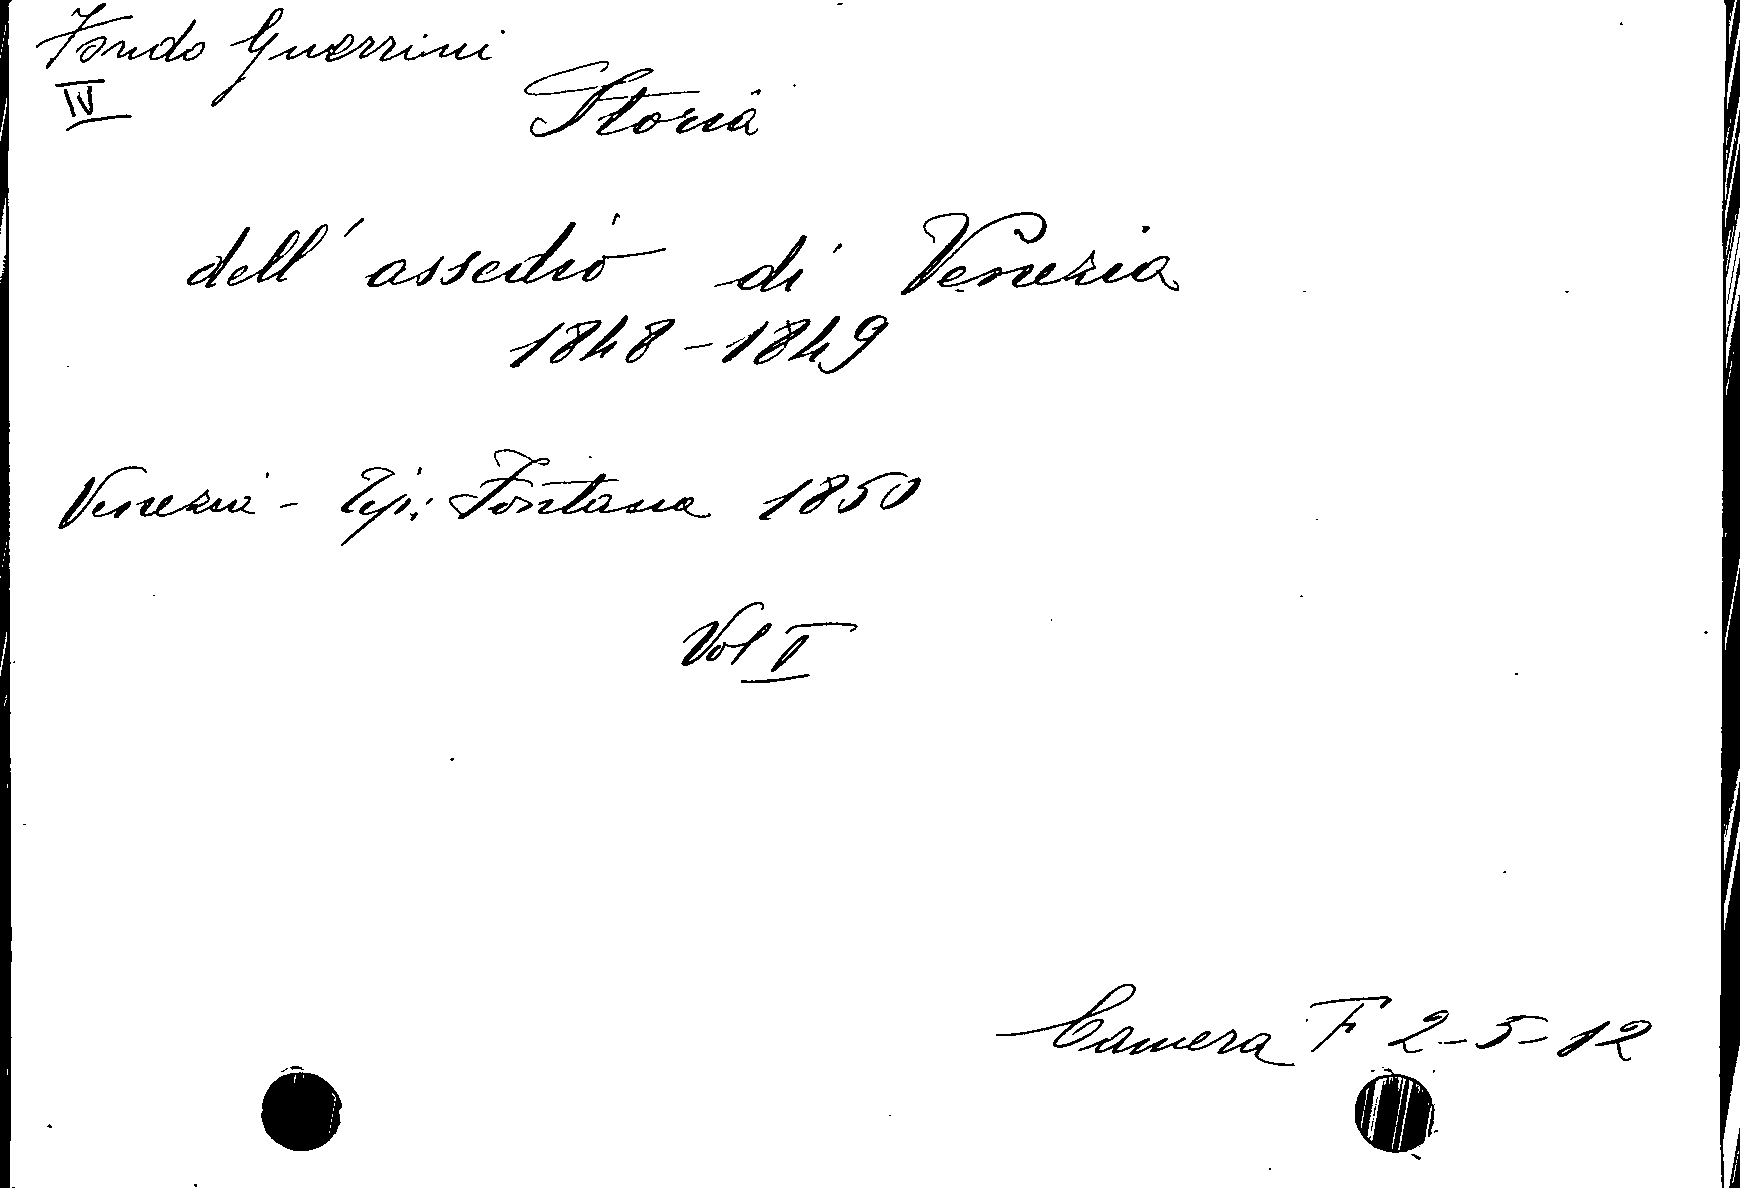 Fondo Guerrini
IV
Storia
dell'assedio di Venezia
1848-1849
Venezia - Tip: Fontana 1850
Vol I
Camera F 2-5-12